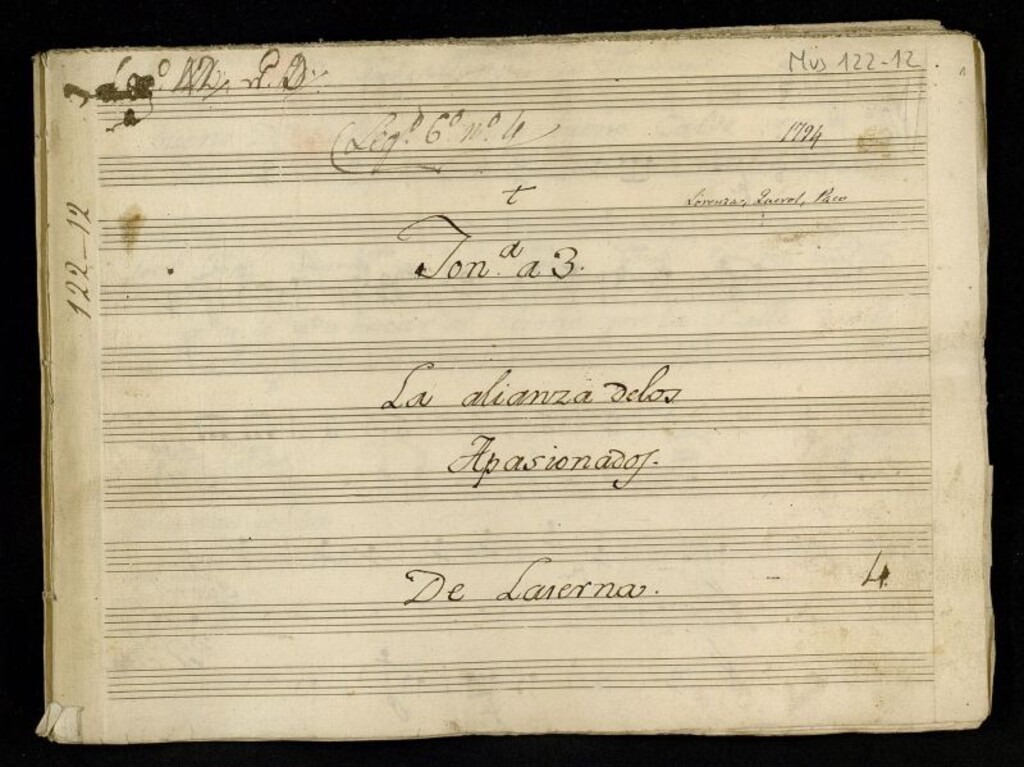 Leg.º 42, nº 2.
Mus 122-12
(Leg.º 6.º n.º 4
1794
Lorenza, Querol, Paco
122-12
Ton.ª a 3.
La alianza delos
Apasionados.
De Laserna.
4